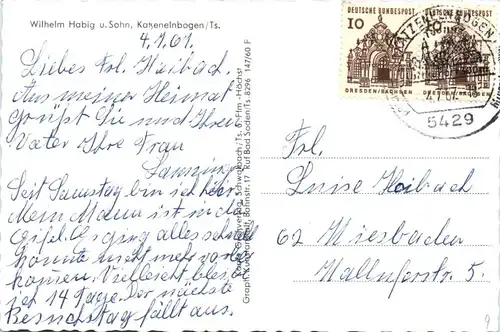 Wilhelm Habig u. Sohn, Katzenelnbogen/Ts.
4.7.67.
Liebes Frl. Haibach
Aus meiner Heimat
grüßt Sie und Ihren
Vater Ihre Frau
Seit Samstag bin ich hier
Mein Mann ist in der
Eifel. Es ging alles schnell
konnte nicht mehr vorbei
kommen. Vielleicht bleibe
ich 14 Tage. Der nächste
Besuchstag fällt aus.
Schwalbach/Ts. b. Ffm.-Höchst
Bahnstr. 17 Ruf Bad Soden/Ts. 8296 147/60 F
DEUTSCHE BUNDESPOST
10
DRESDEN/SACHSEN
DEUTSCHE BUNDESPOST
DRESDEN/SACHSEN
KATZENELNBOGEN
5429
Frl.
Luise Haibach
62 Wiesbaden
Walluferstr. 5.